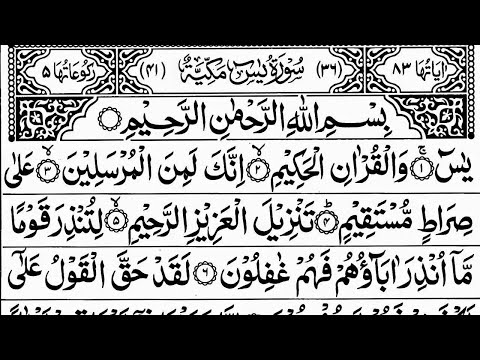 اٰیَاتُہَا ۸۳ (۳۶) سُوْرَۃُ یٰسٓ مَکِّیَّۃٌ (۴۱) رُکُوْعَاتُہَا ۵
بِسْمِ اللّٰہِ الرَّحْمٰنِ الرَّحِیْمِ
یٰسٓ ۚ﴿۱﴾ وَالْقُرْاٰنِ الْحَکِیْمِ ۙ﴿۲﴾ اِنَّکَ لَمِنَ الْمُرْسَلِیْنَ ۙ﴿۳﴾ عَلٰی
صِرَاطٍ مُّسْتَقِیْمٍ ؕ﴿۴﴾ تَنْزِیْلَ الْعَزِیْزِ الرَّحِیْمِ ۙ﴿۵﴾ لِتُنْذِرَ قَوْمًا
مَّاۤ اُنْذِرَ اٰبَآؤُہُمْ فَہُمْ غٰفِلُوْنَ ﴿۶﴾ لَقَدْ حَقَّ الْقَوْلُ عَلٰۤی